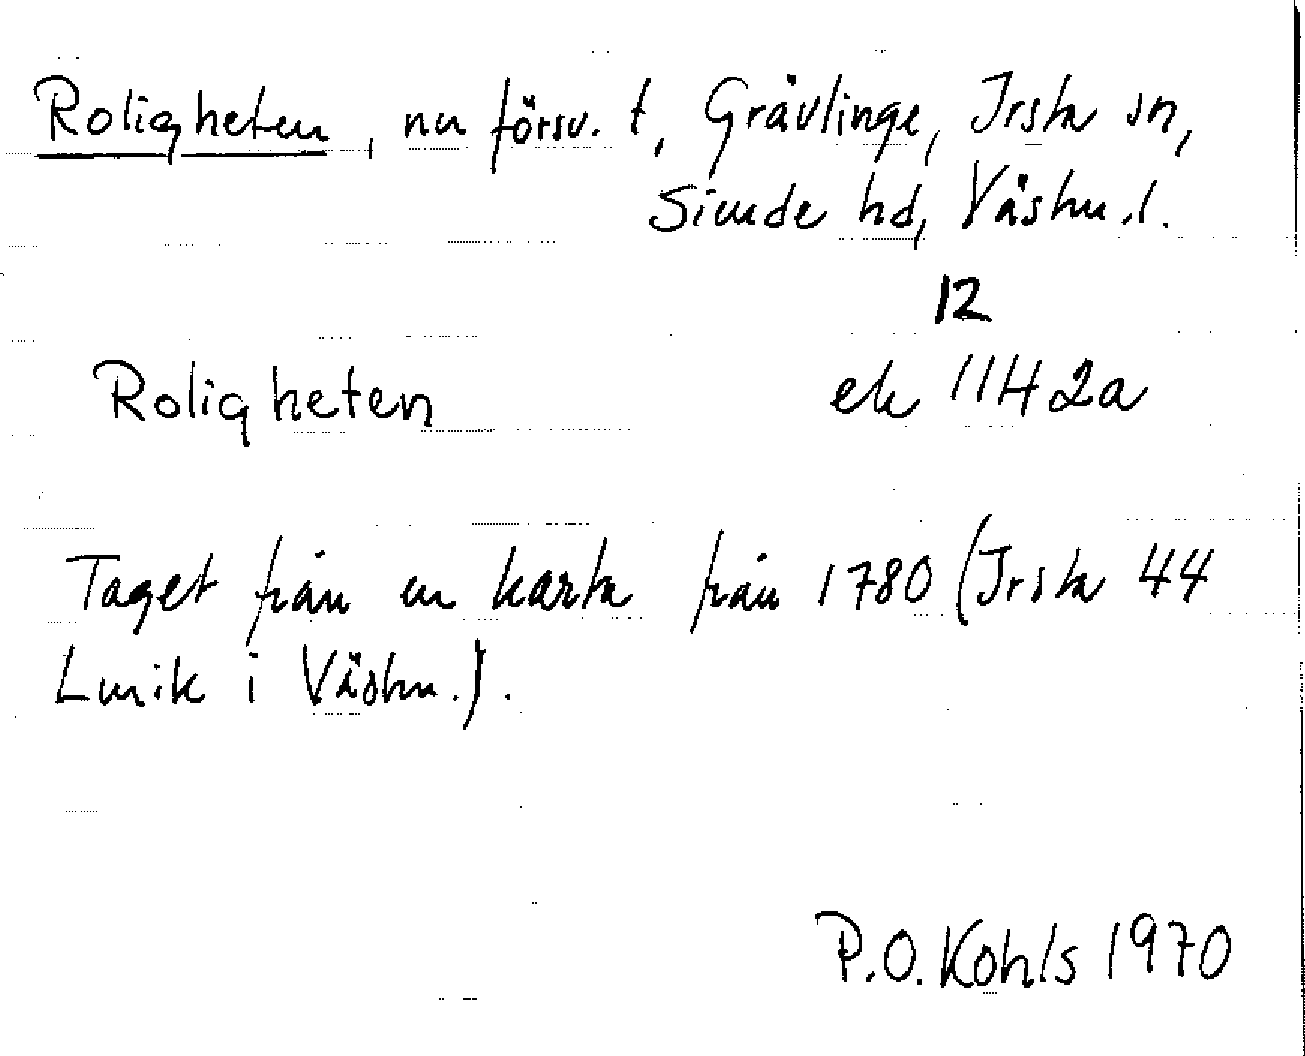 Roligheten, nu försv. t, Grävlinge, Irsta sn,
Siende hd, Västm.l.
12
Roligheten ek 11H2a
Taget från en karta från 1780 (Irsta 44
Lmik i Västm.).
P.O. Kohls 1970